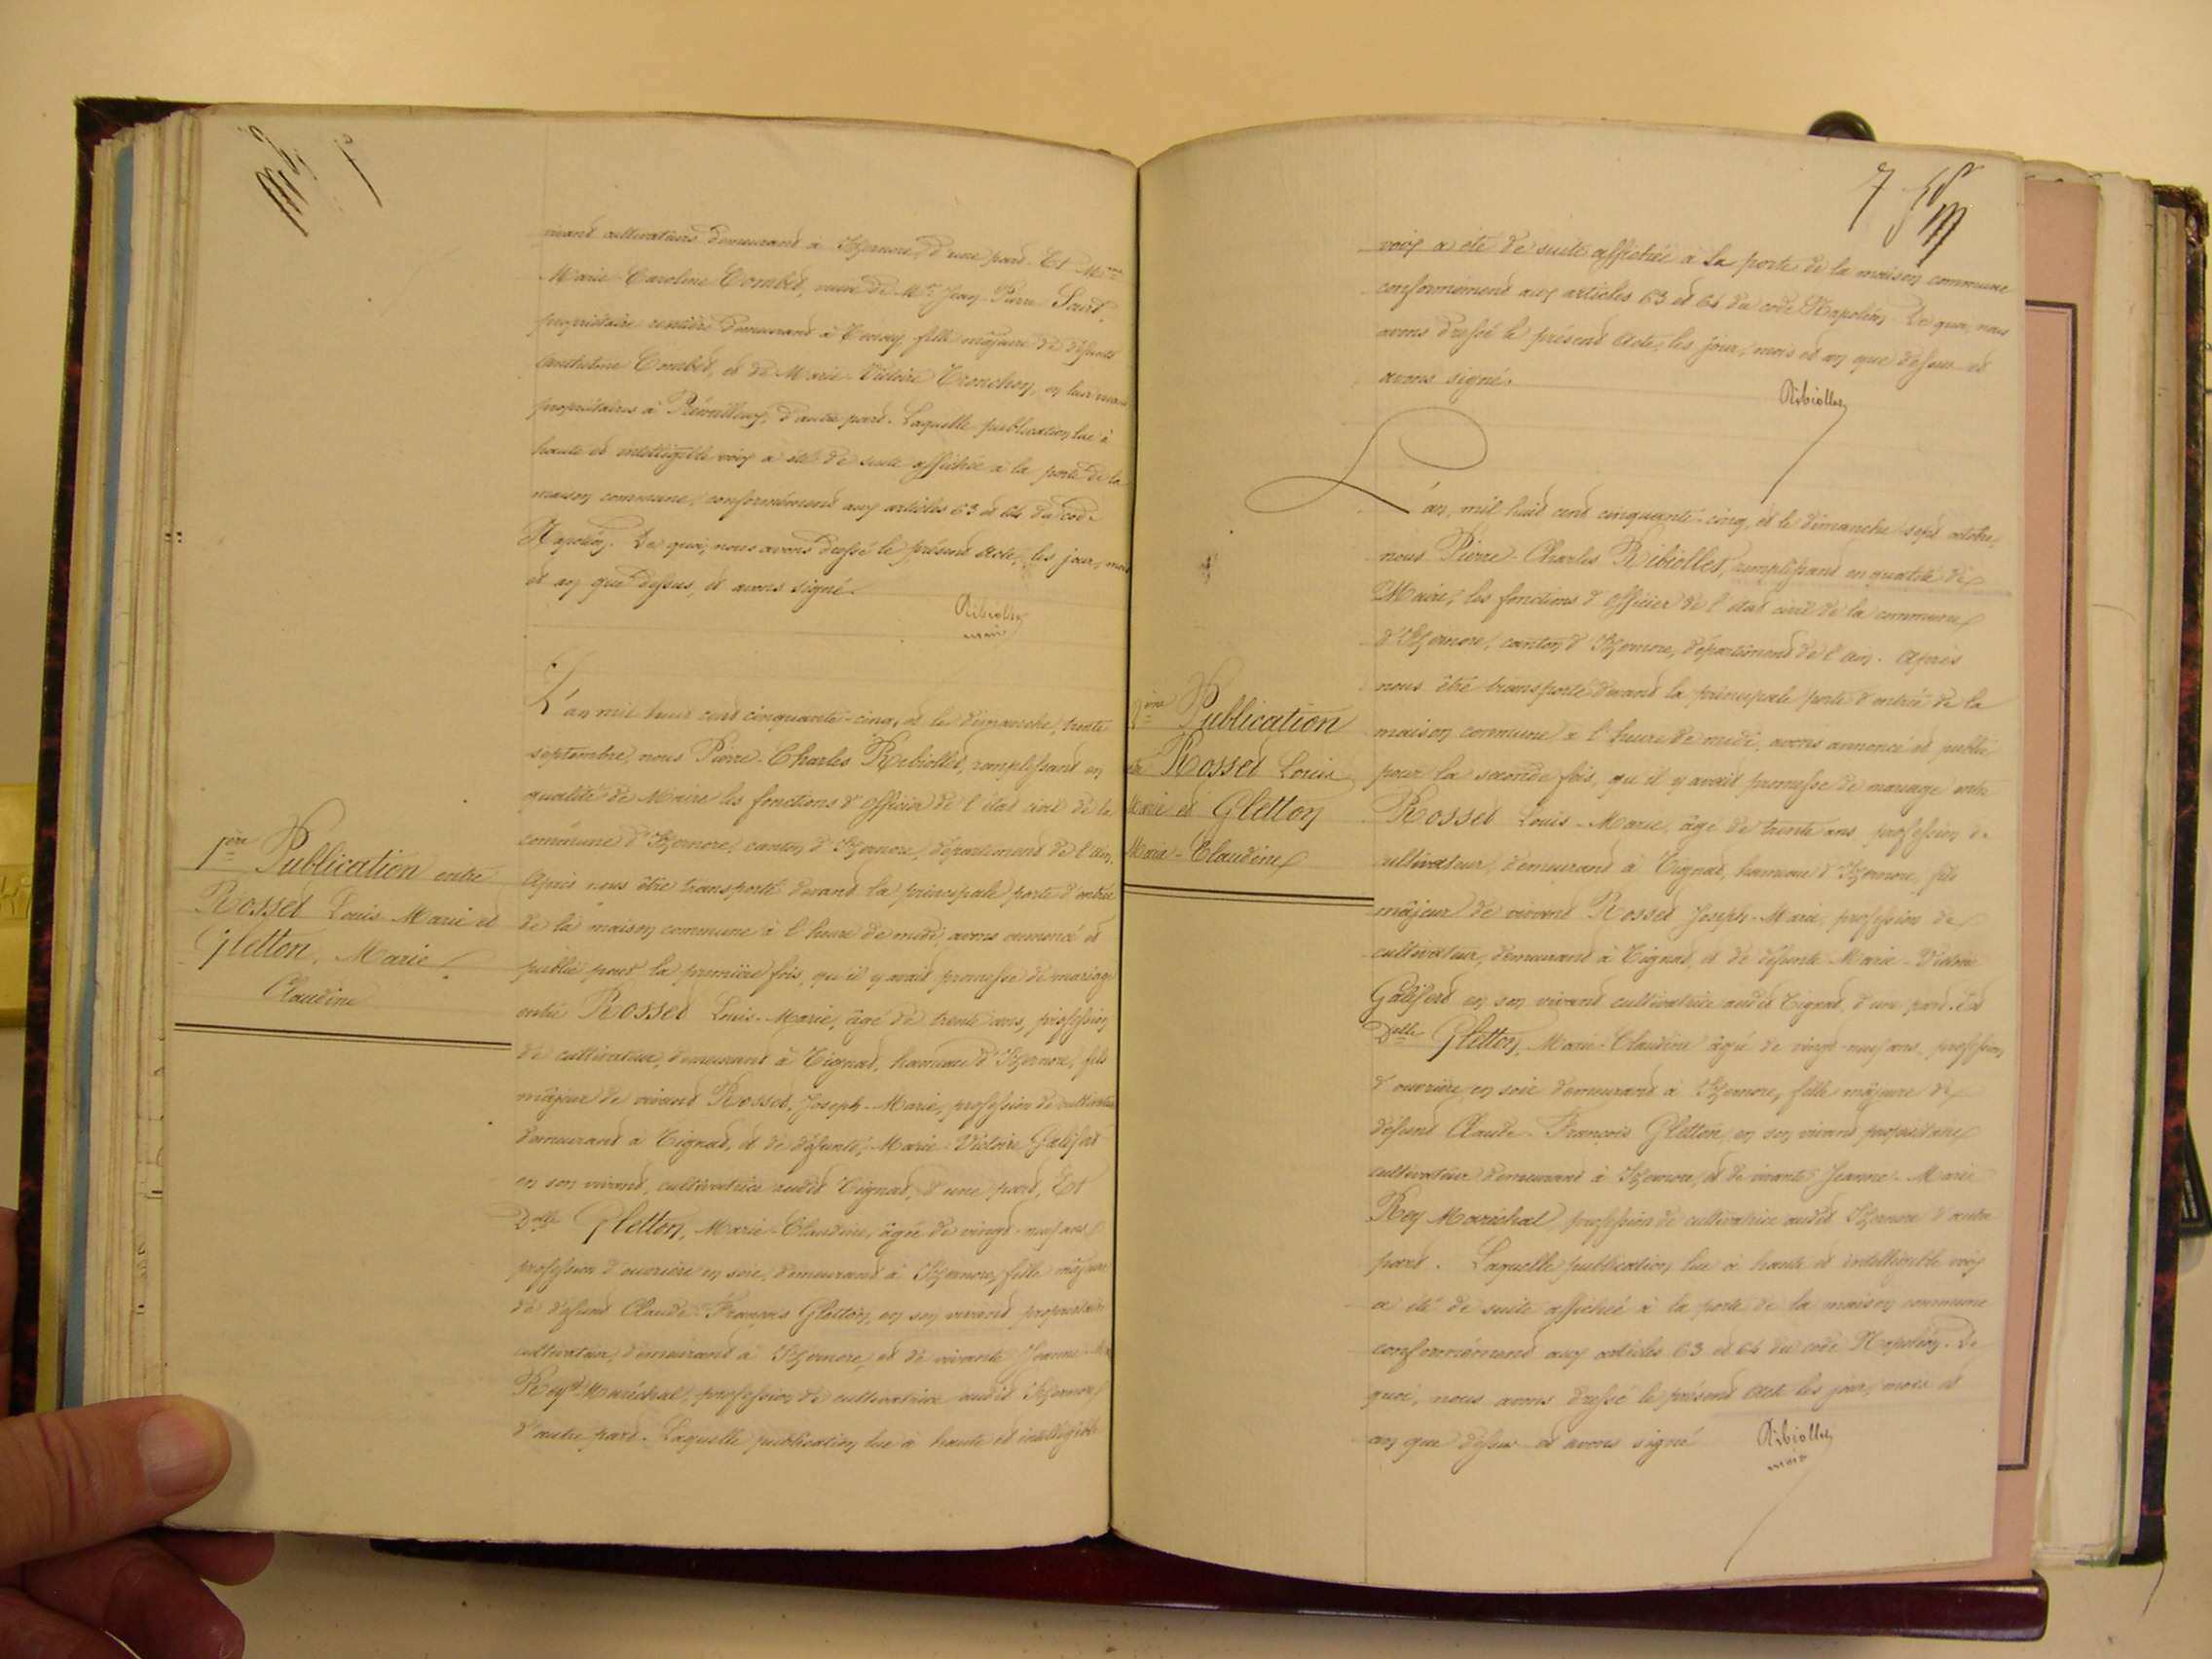 vivant cultivateurs demeurant à Izernore, d'une part. Et Mme
Marie Caroline Combet, veuve de Mr Jean Pierre
propriétaire rentière demeurant à fille majeure de défunts
Anthelme Combet, et de Marie Victoire Tronchon, en leur vivant
propriétaires à d'autre part. Laquelle publication lue à
haute et intelligible voix a été de suite affichée à la porte de la
maison commune, conformément aux articles 63 et 64 du code
Napoléon. De quoi, nous avons dressé le présent acte, les jour, mois
et an que dessus, et avons signé.
Ribiollet
maire
1ère Publication entre
Rosset Louis Marie et
Gletton, Marie
Claudine
L'an mil huit cent cinquante-cinq, et le dimanche, trente
septembre, nous Pierre-Charles Ribiollet, remplissant en
qualité de Maire les fonctions d'officier de l'état civil de la
commune d'Izernore, canton d'Izernore, département de l'ain.
Après nous être transporté devant la principale porte d'entrée
de la maison commune à l'heure de midi, avons annoncé et
publié pour la première fois, qu'il y avait promesse de mariage
entre Rosset Louis-Marie, âgé de trente ans, profession
de cultivateur, demeurant à Tignat, hameau d'Izernore, fils
majeur de vivant Rosset, Joseph-Marie, profession de cultivateur
demeurant à Tignat, et de défunte, Marie-Victoire Galifert
en son vivant, cultivatrice audit Tignat, d'une part, Et
Delle Gletton, Marie-Claudine, âgée de vingt-neuf ans
profession d'ouvrière en soie, demeurant à Izernore, fille majeure
de défunt Claude-François Gletton, en son vivant propriétaire
cultivateur, demeurant à Izernore, et de vivante Jeanne-Ma
Rey Maréchal, profession de cultivatrice audit Izernore
d'autre part. Laquelle publication lue à haute et intelligible
7
voix a été de suite affichée à la porte de la maison commune
conformément aux articles 63 et 64 du code Napoléon. De quoi, nous
avons dressé le présent acte, les jour, mois et an que dessus et
avons signé.
Ribiollet
2ème Publication
entre Rosset Louis
Marie et Gletton
Marie-Claudine
L'an, mil huit cent cinquante-cinq, et le dimanche sept octobre,
nous Pierre-Charles Ribiollet, remplissant en qualité de
Maire, les fonctions d'officier de l'état civil de la commune
d'Izernore, canton d'Izernore, département de l'ain. Après
nous être transporté devant la principale porte d'entrée de la
maison commune à l'heure de midi, avons annoncé et publié
pour la seconde fois, qu'il y avait promesse de mariage entre
Rosset Louis-Marie, âgé de trente ans profession de
cultivateur, demeurant à Tignat, hameau d'Izernore, fils
majeur de vivant Rosset Joseph-Marie, profession de
cultivateur, demeurant à Tignat, et de défunte Marie-Victoire
Galifert en son vivant cultivatrice audit Tignat, d'une part. Et
Delle Gletton, Marie-Claudine âgée de vingt-neuf ans, profession
d'ouvrière en soie demeurant à Izernore, fille majeure de
défunt Claude-François Gletton, en son vivant propriétaire
cultivateur demeurant à Izernore, et de vivante Jeanne-Marie
Rey Maréchal profession de cultivatrice audit Izernore d'autre
part. Laquelle publication lue à haute et intelligible voix
a été de suite affichée à la porte de la maison commune
conformément aux articles 63 et 64 du code Napoléon. De
quoi, nous avons dressé le présent acte les jour, mois et
an que dessus et avons signé
Ribiollet
maire